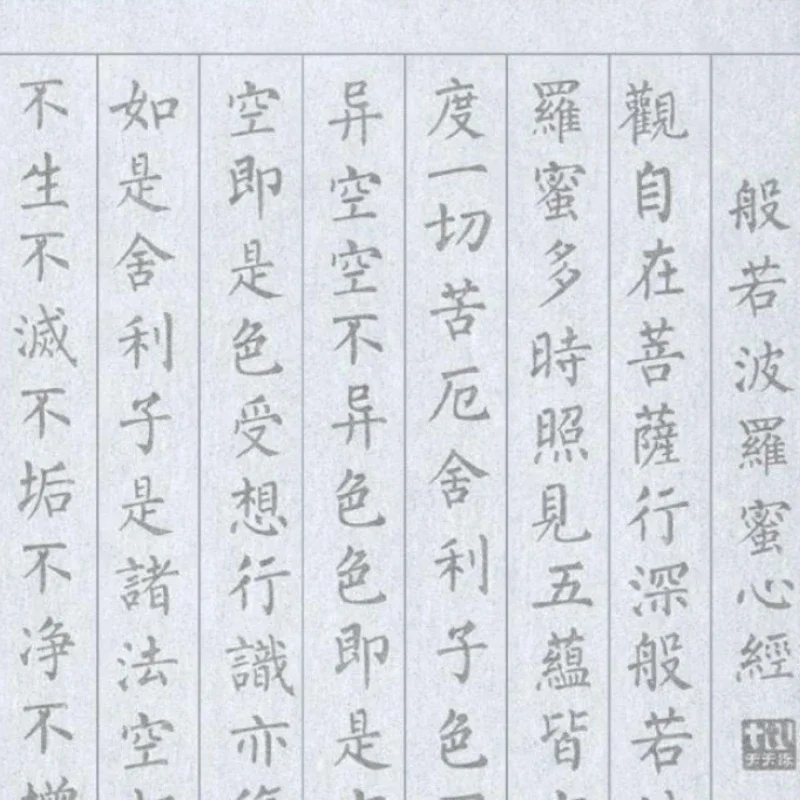 般若波羅蜜心經
觀自在菩薩行深般若
羅蜜多時照見五蘊皆
度一切苦厄舍利子色
异空空不异色色即是
空即是色受想行識亦
如是舍利子是諸法空
不生不滅不垢不净不增